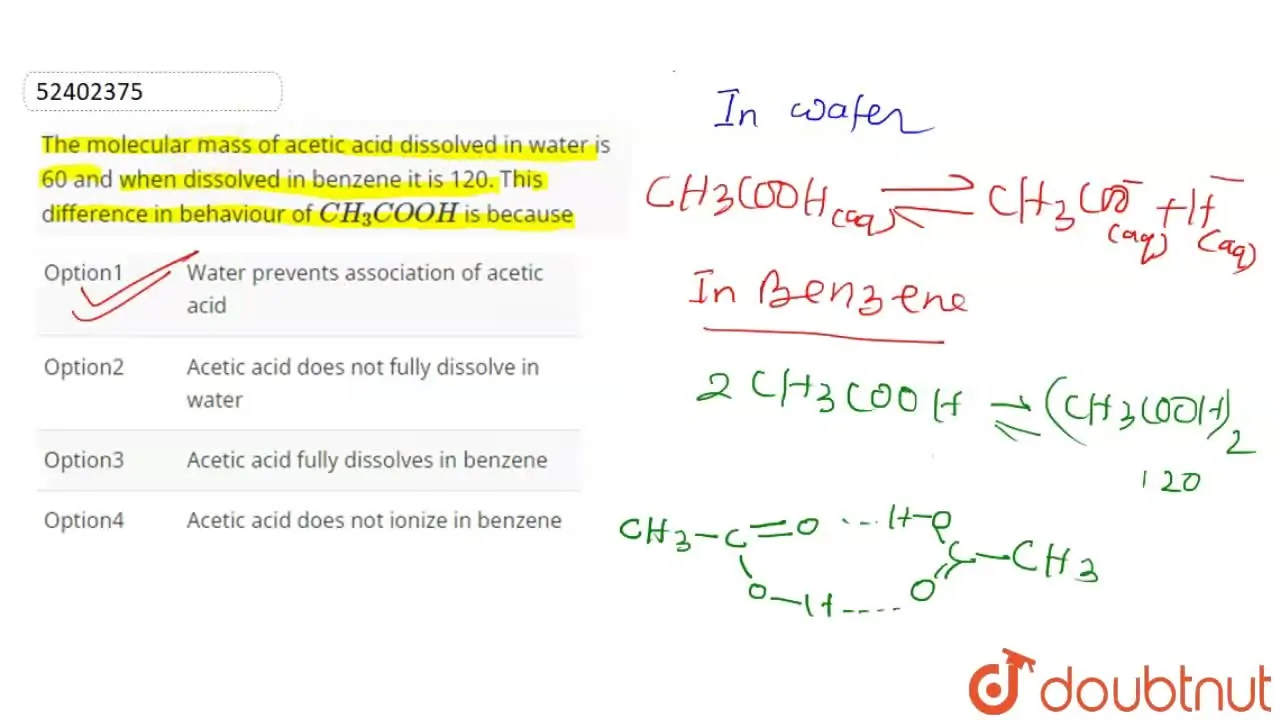 52402375
The molecular mass of acetic acid dissolved in water is
60 and when dissolved in benzene it is 120. This
difference in behaviour of CH₃COOH is because
Option1 Water prevents association of acetic
acid
Option2 Acetic acid does not fully dissolve in
water
Option3 Acetic acid fully dissolves in benzene
Option4 Acetic acid does not ionize in benzene
In water
CH₃COOH(aq) ⇌ CH₃COO⁻(aq) + H⁻(aq)
In Benzene
2 CH₃COOH ⇌ (CH₃COOH)₂
120
CH₃–C=O ---- H–O
C–CH₃
O–H ---- O
doubtnut